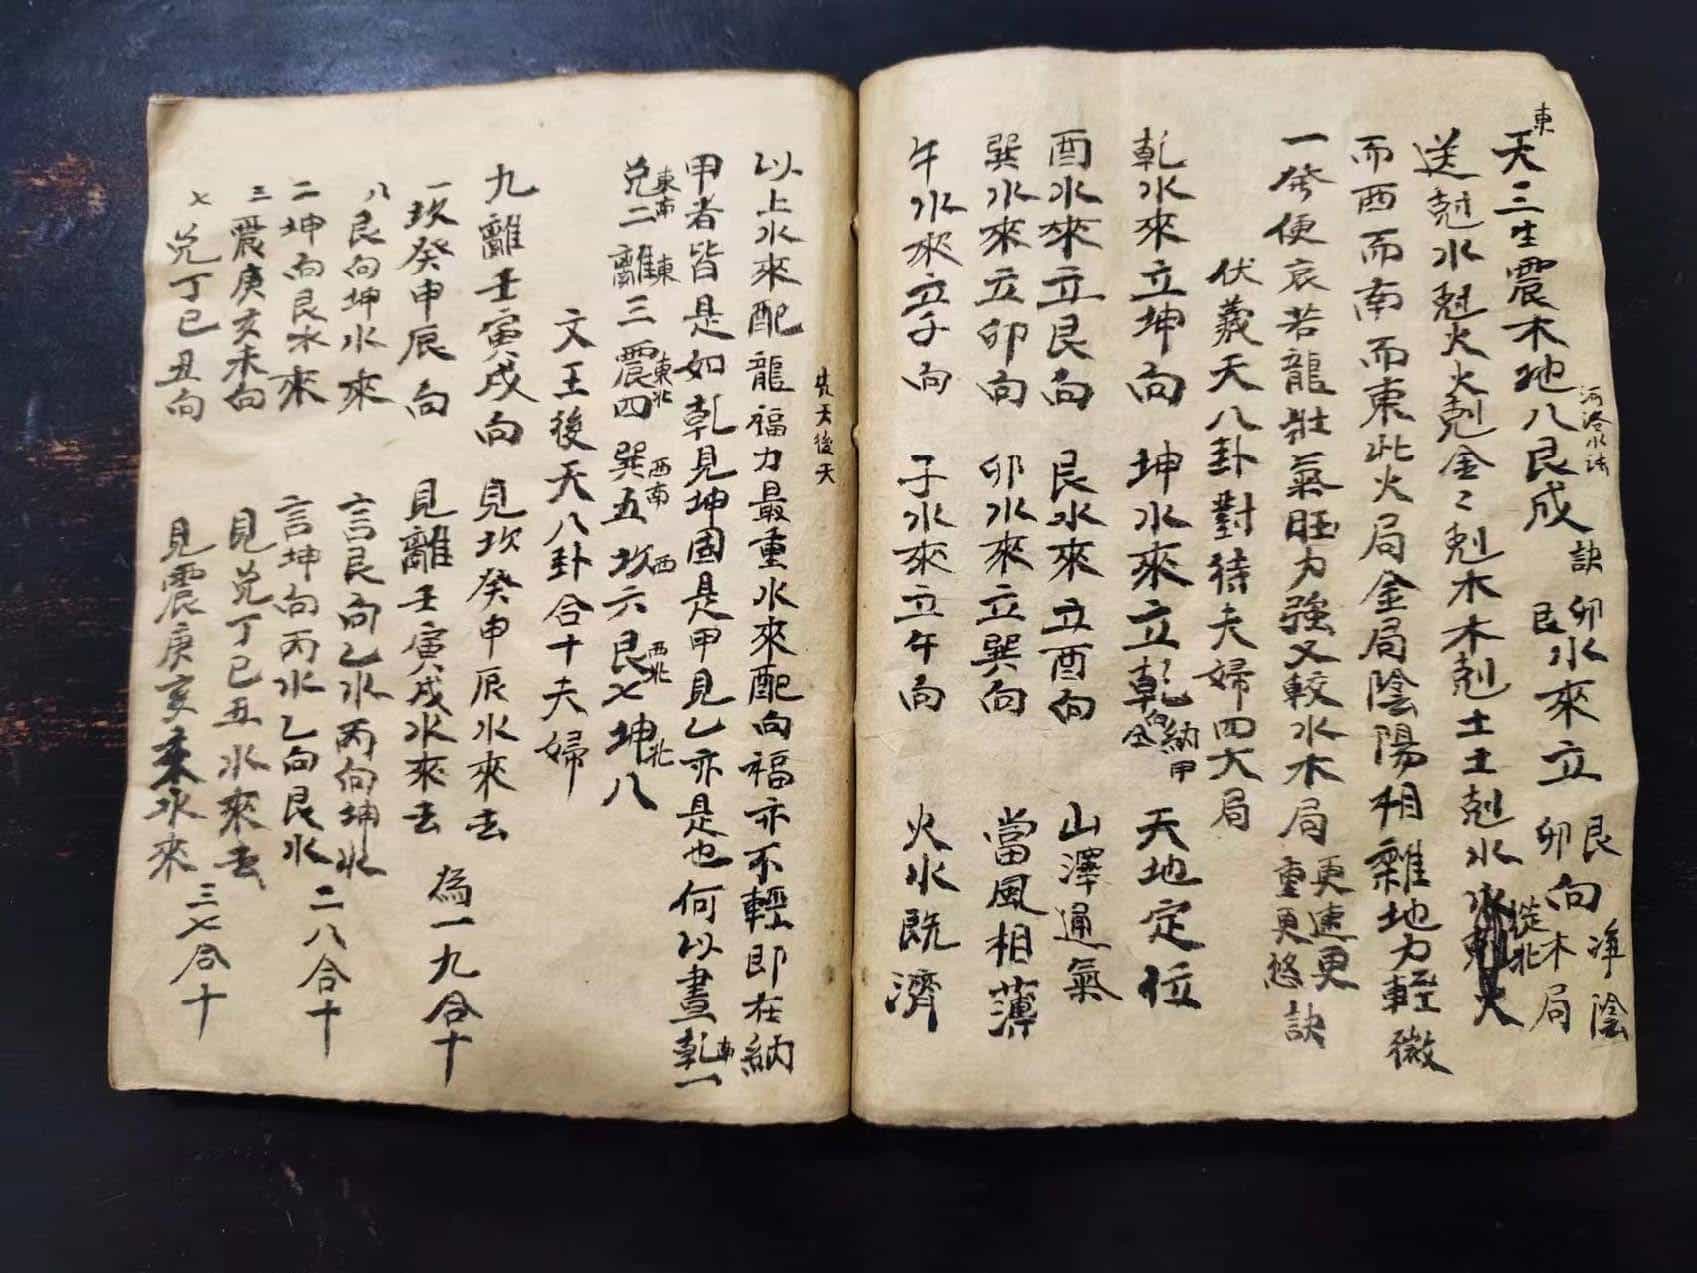 東
天三生震木地八艮成 訣 卯艮水來立 艮卯向 淨陰木局
河洛水法
送尅水尅火火尅金〻尅木木尅土土尅水 從北
而西而南而東此火局金局陰陽相雜地力輕微
一發便哀若龍壯氣旺力強又較水木局 更速更重更悠 訣
伏羲天八卦對待夫婦四大局
乾水來立坤向 坤水來立乾向 納甲 天地定位
酉水來立艮向 艮水來立酉向 山澤通氣
巽水來立卯向 卯水來立巽向 當風相薄
午水來立子向 子水來立午向 火水既濟
先天後天
以上水來配龍福力最重水來配向福亦不輕即在納
甲者皆是如乾見坤固是甲見乙亦是也何以晝乾一 南
兌二 東南 離三 東 震四 東北 巽五 西南 坎六 西 艮七 西北 坤八 北
文王後天八卦合十夫婦
九離壬寅戌向 見坎癸申辰水來去
一坎癸申辰向 見離壬寅戌水來去 為一九合十
八艮向坤水來 言艮向乙水丙向坤水
二坤向艮水來 言坤向丙水乙向艮水 二八合十
三震庚亥未向 見兌丁巳丑水來去
七兌丁巳丑向 見震庚亥未水來 三七合十